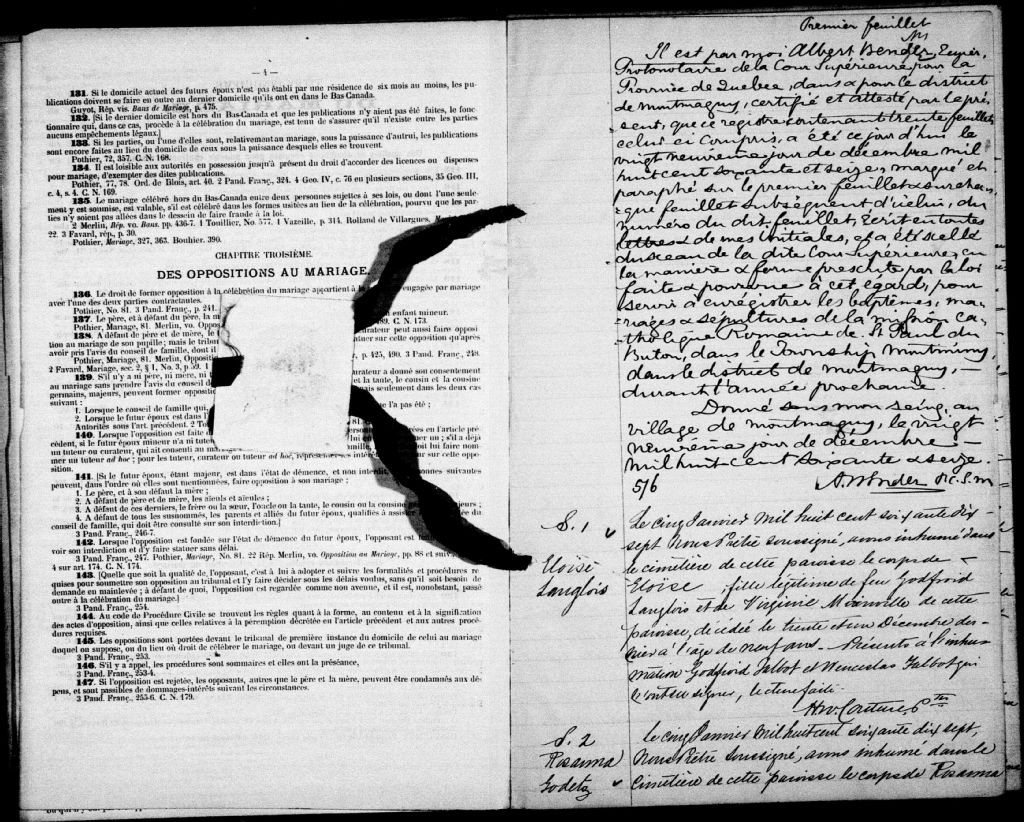 — 4 —
131. Si le domicile actuel des futurs époux n'est pas établi par une résidence de six mois au moins, les pu-
blications doivent se faire en outre au dernier domicile qu'ils ont eu dans le Bas-Canada.
Guyot, Rép. vis. Bans de Mariage, p. 475.
132. [Si le dernier domicile est hors du Bas-Canada et que les publications n'y aient pas été faites, le fonc-
tionnaire qui, dans ce cas, procède à la célébration du mariage, est tenu de s'assurer qu'il n'existe entre les parties
aucuns empêchements légaux.]
133. Si les parties, ou l'une d'elles sont, relativement au mariage, sous la puissance d'autrui, les publications
sont encore faites au lieu du domicile de ceux sous la puissance desquels elles se trouvent.
Pothier, 72, 357. C. N. 168.
134. Il est loisible aux autorités en possession jusqu'à présent du droit d'accorder des licences ou dispenses
pour mariage, d'exempter des dites publications.
Pothier, 77, 78. Ord. de Blois, art. 40. 2 Pand. Franç., 324. 4 Geo. IV, c. 76 en plusieurs sections, 35 Geo. III,
c. 4, s. 4. C. N. 169.
135. Le mariage célébré hors du Bas-Canada entre deux personnes sujettes à ses lois, ou dont l'une seule-
ment y est soumise, est valable, s'il est célébré dans les formes usitées au lieu de la célébration, pourvu que les par-
ties n'y soient pas allées dans le dessein de faire fraude à la loi.
2 Merlin, Rép. vo. Bans. pp. 436-7. 1 Touillier, No. 577. 1 Vazeille, p. 314. Rolland de Villargues,
22. 3 Favard, rép., p. 30.
Pothier, Mariage, 327, 363. Bouhier. 390.
CHAPITRE TROISIÈME.
DES OPPOSITIONS AU MARIAGE.
136. Le droit de former opposition à la célébration du mariage appartient à engagée par mariage
avec l'une des deux parties contractantes.
Pothier, No. 81. 3 Pand. Franç., p. 241.
137. Le père, et à défaut du père, la m enfant mineur.
Pothier, Mariage, 81. Merlin, vo. Oppos 89. C. N. 173.
138. A défaut de père et de mère, le t urateur peut aussi faire opposi
tion au mariage de son pupille; mais le tribun atuer sur cette opposition qu'après
avoir pris l'avis du conseil de famille, dont il
Pothier, Mariage, 81. Merlin, Opposition , p. 425, 490. 3 Pand. Franç., 248.
2 Favard, Mariage, sec. 2, § 1, No. 3, p. 59. 1
139. S'il n'y a ni père, ni mère, ni t urateur a donné son consentement
au mariage sans prendre l'avis du conseil d et la tante, le cousin et la cousine
germains, majeurs, peuvent former oppositi ais seulement dans les deux cas
suivant :
1. Lorsque le conseil de famille qui, ue l'a pas été ;
2. Lorsque le futur époux est dans l'
Autorités sous l'art. précédent. 2 To
140. Lorsque l'opposition est faite d en l'article pré-
cédent, si le futur époux mineur n'a ni tuteu mer un ; s'il a déjà
un tuteur ou curateur, qui ait consenti au m lui faire nom-
mer un tuteur ad hoc ; pour les tuteur, curateur ou tuteur ad hoc, représenter ses intérêts sur cette oppo-
sition.
141. [Si le futur époux, étant majeur, est dans l'état de démence, et non interdit, sonnes suivantes
peuvent, dans l'ordre où elles sont mentionnées, faire opposition à son mariage :
1. Le père, et à son défaut la mère ;
2. A défaut de père et de mère, les aïeuls et aïeules ;
3. A défaut de ces derniers, le frère ou la sœur, l'oncle ou la tante, le cousin ou la cousine eurs ;
4. A défaut de tous les susnommés, les parents et alliés du futur époux, qualifiés à assister du
conseil de famille, qui doit être consulté sur son interdiction.]
3 Pand. Franç., 246-7.
142. Lorsque l'opposition est fondée sur l'état de démence du futur époux, l'opposant est
voir son interdiction et d'y faire statuer sans délai.
3 Pand. Franç., 247. Pothier, Mariage, No. 81. 22 Rép. Merlin, vo. Opposition au Mariage, pp. 88 et suiv
4 sur art. 174. C. N. 174.
143. [Quelle que soit la qualité de l'opposant, c'est à lui à adopter et suivre les formalités et procédures re
quises pour soumettre son opposition au tribunal et l'y faire décider sous les délais voulus, sans qu'il soit besoin de
demande en mainlevée ; à défaut de quoi, l'opposition est regardée comme non avenue, et il est, nonobstant, passé
outre à la célébration du mariage.]
3 Pand. Franç., 254.
144. Au code de Procédure Civile se trouvent les règles quant à la forme, au contenu et à la signification
des actes d'opposition, ainsi que celles relatives à la péremption décrétée en l'article précédent et aux autres procé-
dures requises.
145. Les oppositions sont portées devant le tribunal de première instance du domicile de celui au mariage
duquel on suppose, ou du lieu où droit de célébrer le mariage, ou devant un juge de ce tribunal.
3 Pand. Franç., 253.
146. S'il y a appel, les procédures sont sommaires et elles ont la préséance,
3 Pand. Franç., 253-4.
147. Si l'opposition est rejetée, les opposants, autres que le père et la mère, peuvent être condamnés aux dé-
pens, et sont passibles de dommages-intérêts suivant les circonstances.
3 Pand. Franç., 255-6. C. N. 179.
Premier feuillet
Il est par moi Albert Bender, Ecuier,
Protonotaire de la Cour Supérieure pour la
Province de Quebec, dans & pour le district
de montmagny, certifié et attesté par le pré-
sent, que ce registre contenant trente feuillets
celui ci compris, a été ce jour d'hui le
vingt neuvieme jour de décembre mil
huit cent soixante et seize, marqué et
paraphé sur le premier feuillet & sur cha-
que feuillet subséquent d'icelui, du
numéro du dit feuillet, écrit en toutes
lettres & de mes initiales, et a été scellé
du sceau de la dite Cour Supérieure, en
la manière & forme prescrite par la loi
faite & pourvue à cet égard, pour
servir à enrégistrer les baptêmes, ma-
riages & sépultures de la mission ca-
tholique Romaine de St Paul du
Buton, dans le Township montminy,
dans le district de montmagny, —
durant l'année prochaine.
Donné sous mon seing, au
village de montmagny, le vingt
neuvième jour de décembre —
mil huit cent soixante & seize.
516 A. Bender P.C.S.M
S. 1
Eloïse
Langlois
Le cinq Janvier mil huit cent soixante dix-
sept Nous Prêtre soussigné, avons inhumé dans
le cimetière de cette paroisse le corps de
Eloïse, fille légitime de feu Godfroid
Langlois et de Virginie Mainville de cette
paroisse, décédée le trente et un Décembre der-
nier à l'age de neuf ans. Présents à l'inhu-
mation Godfroid Talbot et Wenceslas Talbot qui
n'ont su signer, lecture faite.
H. W. Couture Ptre
S. 2
Rosanna
Godetz
Le cinq Janvier mil huit cent soixante dix sept,
Nous Prêtre soussigné, avons inhumé dans le
Cimetière de cette paroisse le corps de Rosanna